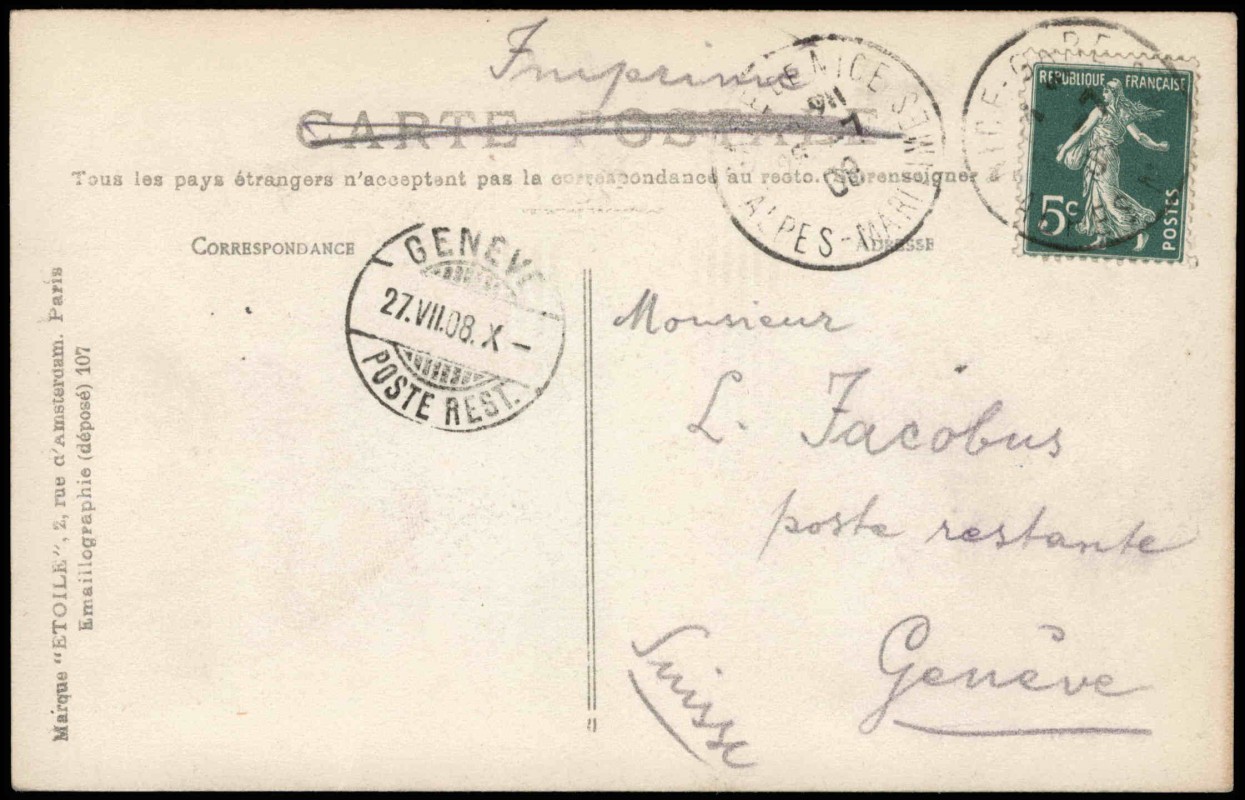 Imprimé
CARTE POSTALE
Tous les pays étrangers n'acceptent pas la correspondance au recto. Se renseigner à
RÉPUBLIQUE FRANÇAISE
5c
POSTES
GARE DE NICE
ALPES-MARITIMES
08
NICE-GARE
CORRESPONDANCE
ADRESSE
GENÈVE
27.VII.08.X-
POSTE REST.
Monsieur
L. Jacobus
poste restante
Genève
Suisse
Marque "ETOILE", 2, rue d'Amsterdam. Paris
Emaillographie (déposé) 107